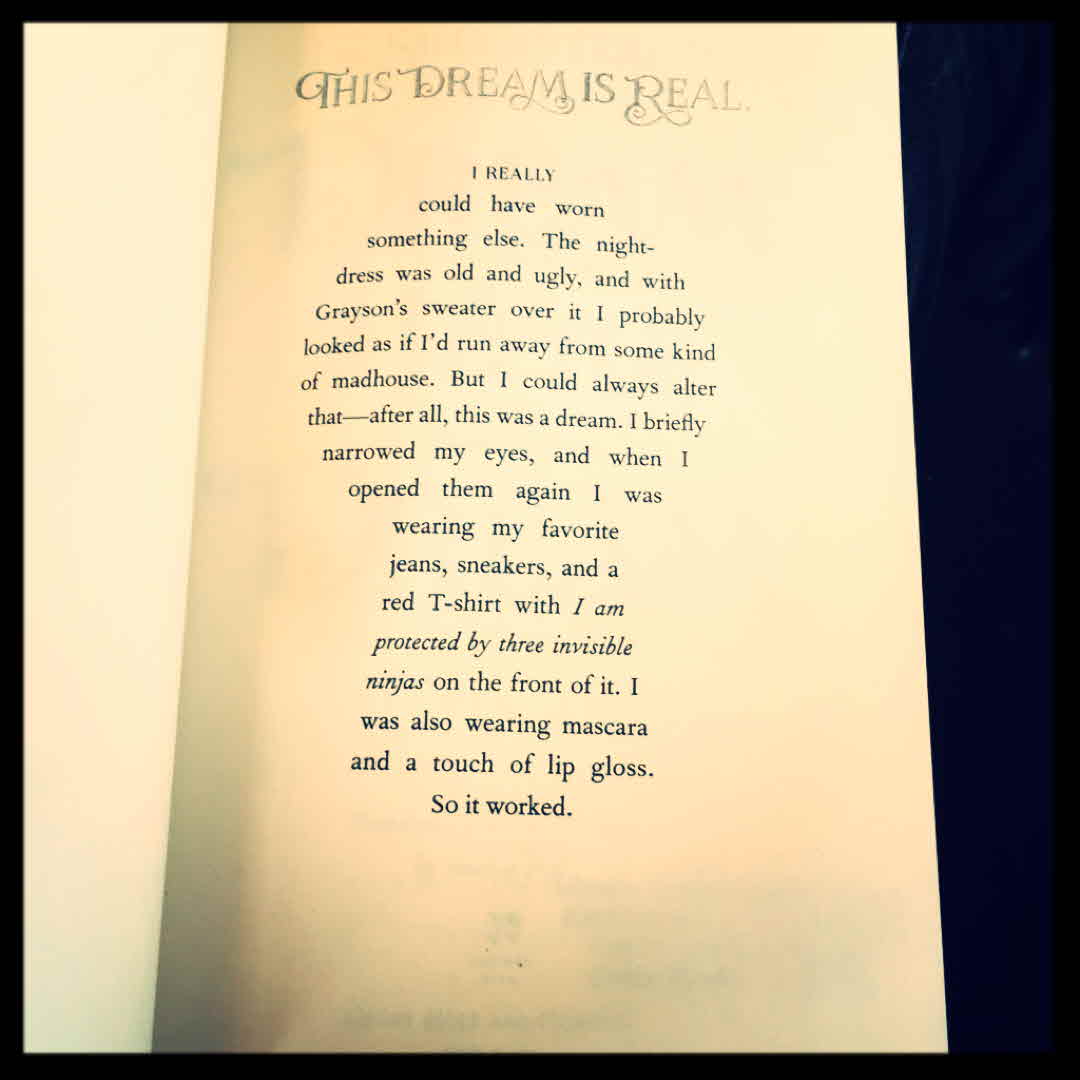 THIS DREAM IS REAL.
I REALLY
could have worn
something else. The night-
dress was old and ugly, and with
Grayson's sweater over it I probably
looked as if I'd run away from some kind
of madhouse. But I could always alter
that—after all, this was a dream. I briefly
narrowed my eyes, and when I
opened them again I was
wearing my favorite
jeans, sneakers, and a
red T-shirt with I am
protected by three invisible
ninjas on the front of it. I
was also wearing mascara
and a touch of lip gloss.
So it worked.